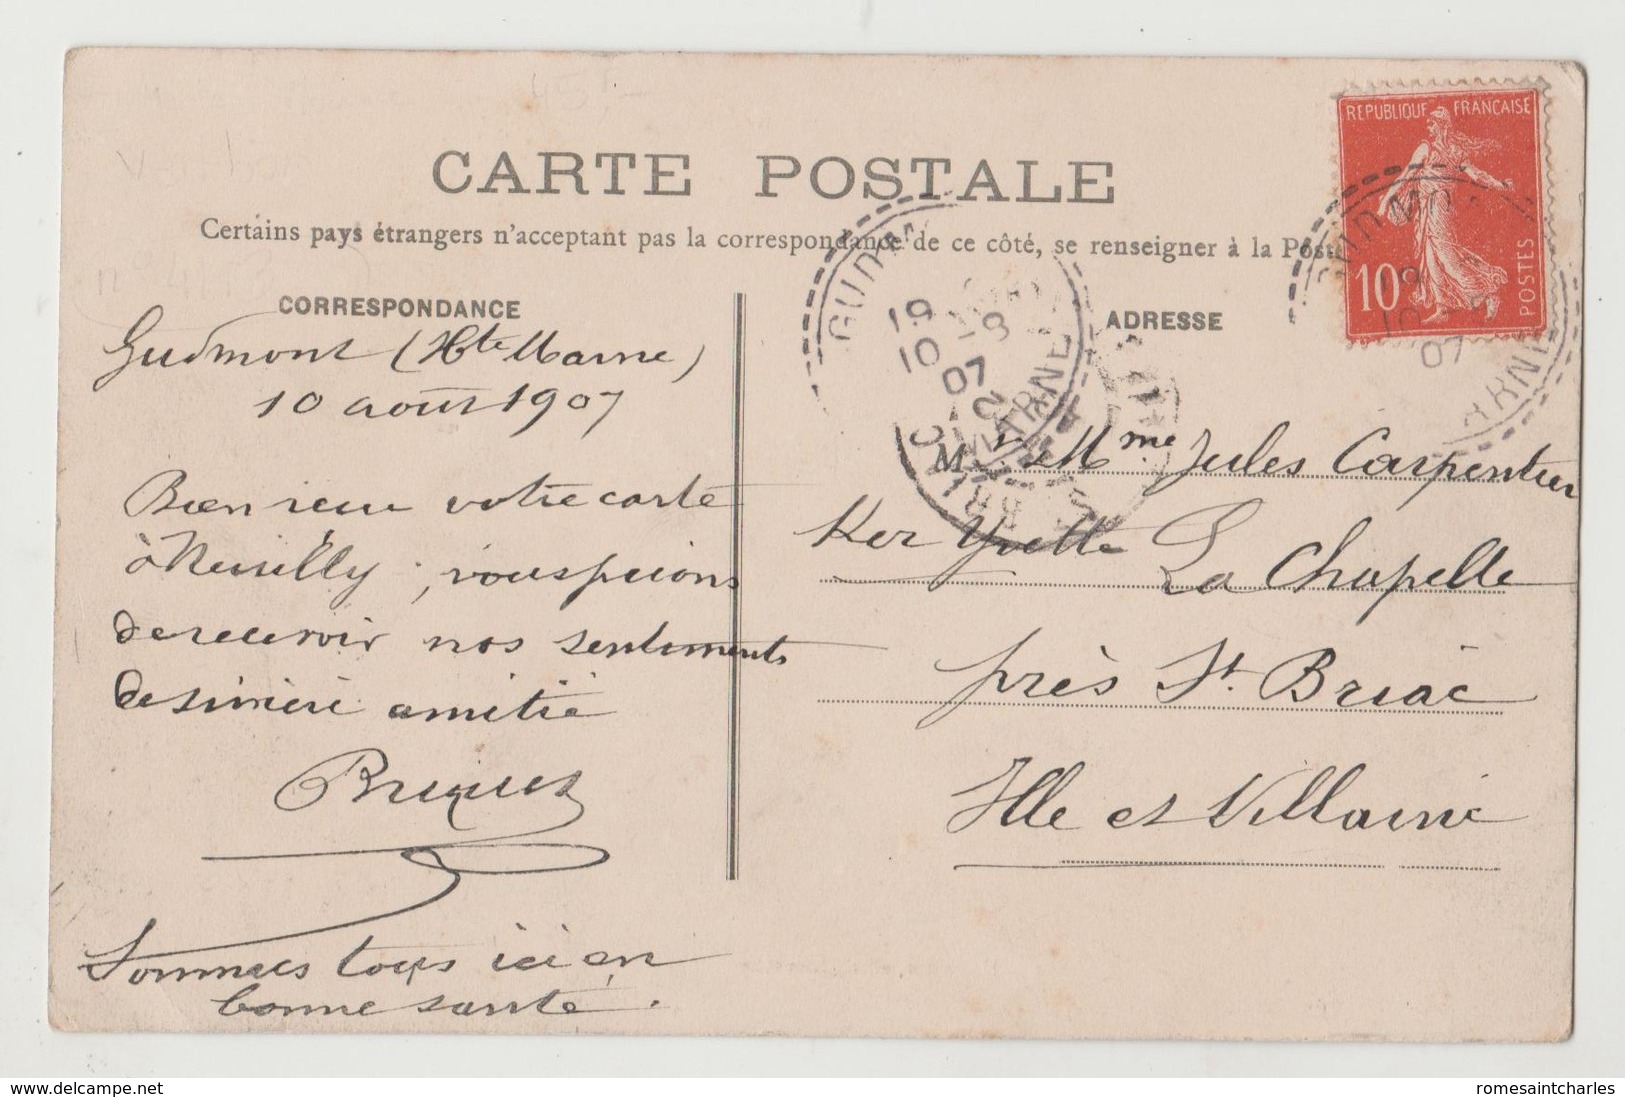 CARTE POSTALE
Certains pays étrangers n'acceptent pas la correspondance de ce côté, se renseigner à la Poste
CORRESPONDANCE
Gudmont (Hte Marne)
10 août 1907
Bien reçu votre carte
à Neuilly, vous prions
de recevoir nos sentiments
de sincère amitié
Sommes tous ici en
bonne santé.
ADRESSE
M r. Mme Jules Carpentier
Ker Yvette La Chapelle
près St. Briac
Ille et Villaine
REPUBLIQUE FRANÇAISE
10c
POSTES
GUDM
19
10 -8
07
MARNE
BRIAC
19
10 -8
07
www.delcampe.net
romesaintcharles